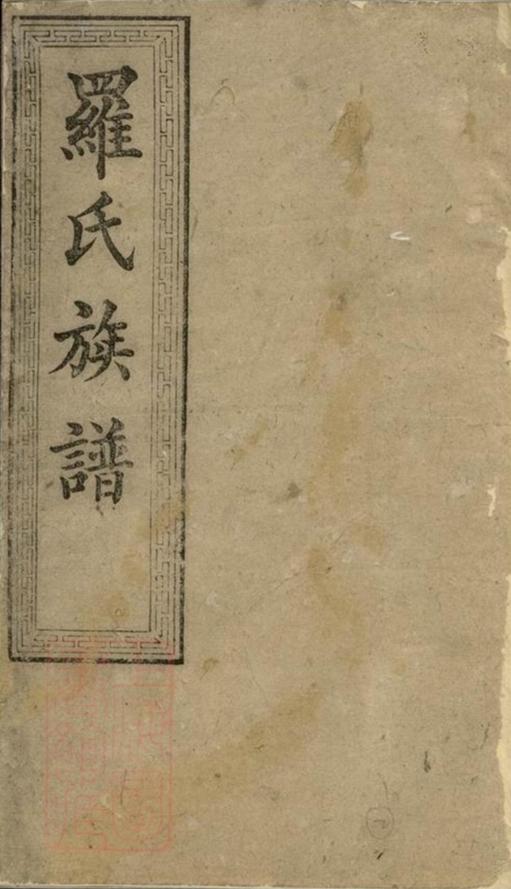 羅氏族譜